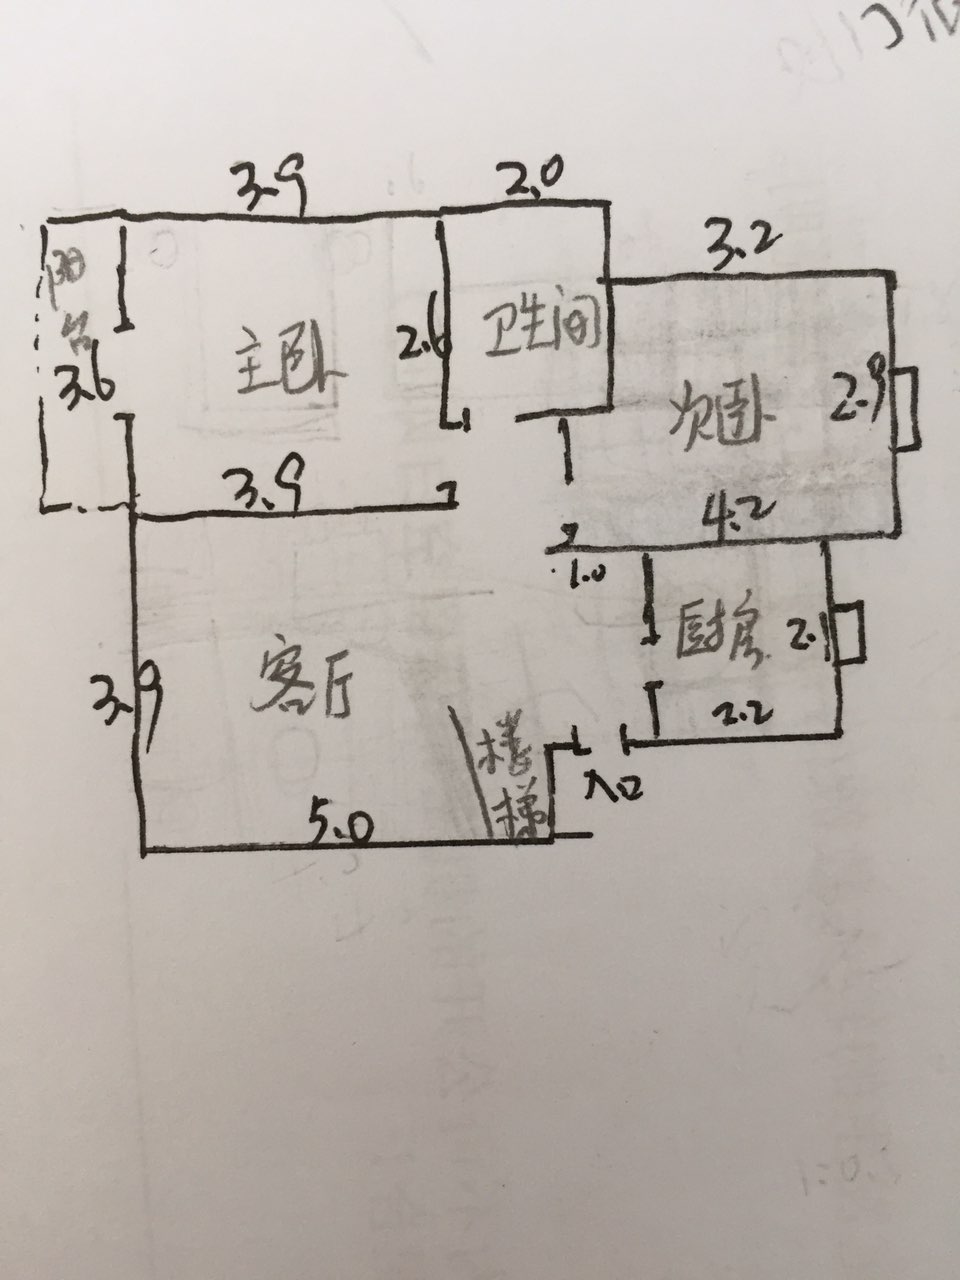 3.9
2.0
3.2
阳台
3.6
主卧
2.6
卫生间
次卧
2.9
3.9
4.2
1.0
厨房
2.1
客厅
3.9
2.2
楼梯
入口
5.0